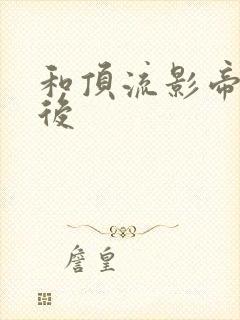 和頂流影帝
後
詹皇